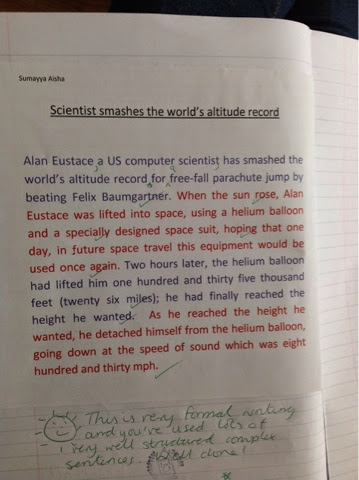 Sumayya Aisha
Scientist smashes the world's altitude record
Alan Eustace a US computer scientist has smashed the
world's altitude record for free-fall parachute jump by
beating Felix Baumgartner. When the sun rose, Alan
Eustace was lifted into space, using a helium balloon
and a specially designed space suit, hoping that one
day, in future space travel this equipment would be
used once again. Two hours later, the helium balloon
had lifted him one hundred and thirty five thousand
feet (twenty six miles); he had finally reached the
height he wanted. As he reached the height he
wanted, he detached himself from the helium balloon,
going down at the speed of sound which was eight
hundred and thirty mph.
This is very formal writing
and you've used lots of
very well structured complex
sentences. Well done!